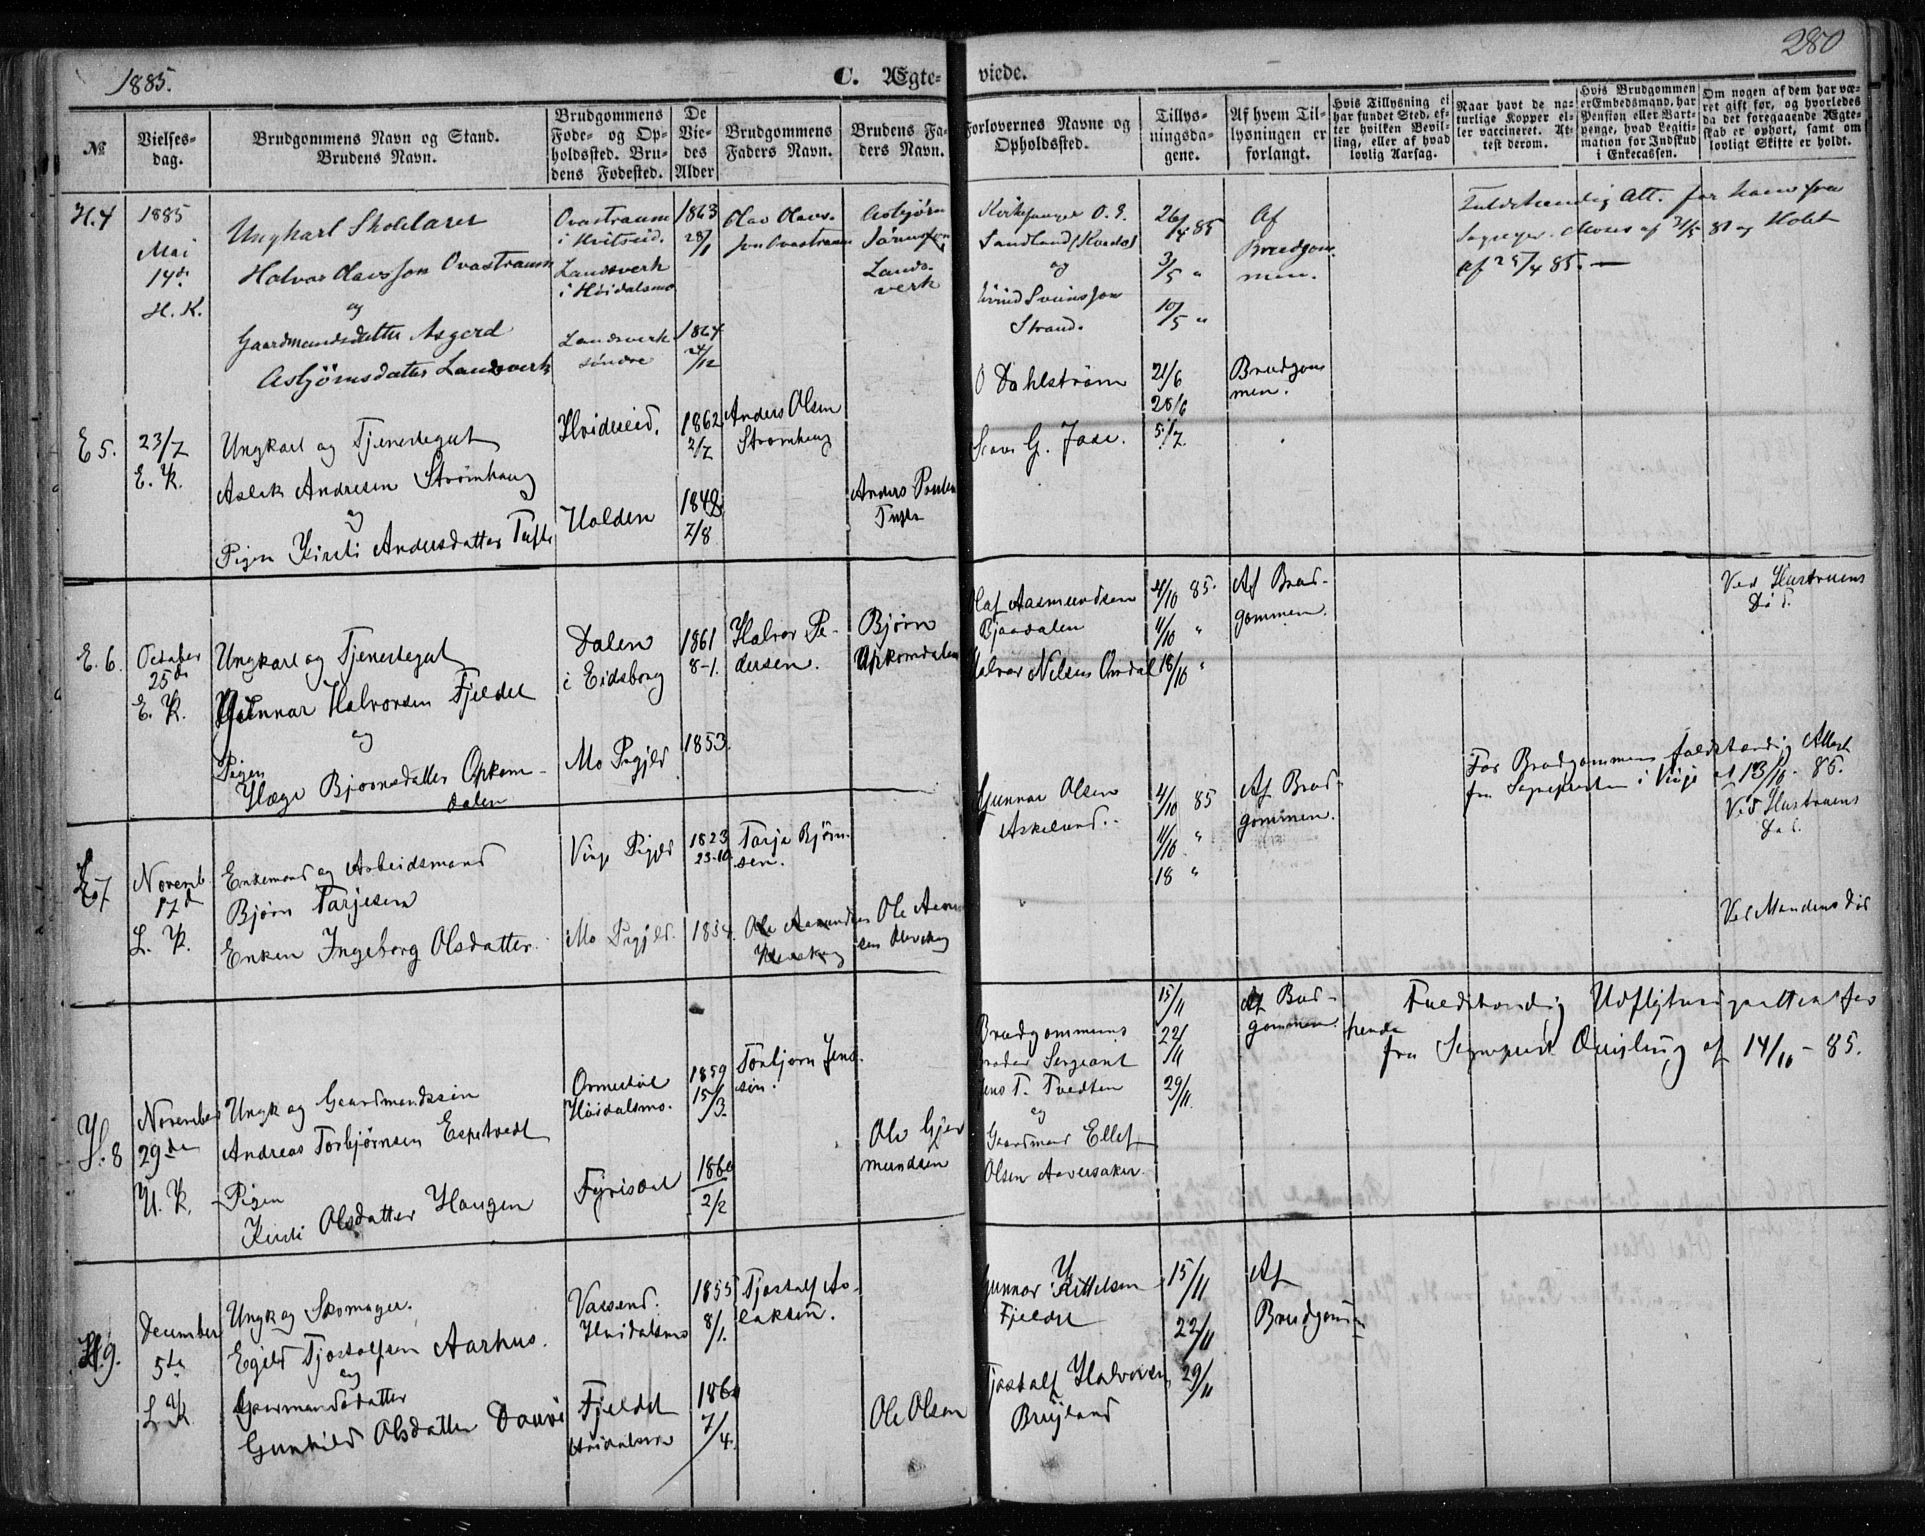 1885.
C. Ægte-
viede.
280
№
Vielses-
dag.
Brudgommens Navn og Stand.
Brudens Navn.
Brudgommens
Føde- og Op-
holdssted. Bru-
dens Fødested.
De
Vie-
des
Alder
Brudgommens
Faders Navn.
Brudens Fa-
ders Navn.
Forlovernes Navne og
Opholdssted.
Tillys-
ningsda-
gene.
Af hvem Til-
lysningen er
forlangt.
Hvis Tillysning ei
har fundet Sted, ef-
ter hvilken Bevil-
ling, eller af hvad
lovlig Aarsag.
Naar havt de na-
turlige Kopper el-
ler vaccineret. At-
test derom.
Hvis Brudgommen
er Embedsmand, har
Pension eller Vart-
penge, hvad Legiti-
mation for Indskud
i Enkecassen.
Om nogen af dem har væ-
ret gift før, og hvorledes
da det foregaaende Ægte-
skab er ophørt, samt om
lovligt Skifte er holdt.
H. 4
1885
Mai
14de
H. K.
Ungkarl Skolelærer
Halvor Olavsson Ovastraum
og
Gaardmandsdatter Asgerd
Asbjørnsdatter Landsverk
Ovastraum
i Kvitseid.
Landsverk
i Høidalsmo
Landsverk
søndre
1863
28/1
1864
24/12
Olav Olavs-
son Ovastraum
Asbjørn
Lands-
verk
Kirkesanger O. G.
Sandland (Kvedo)
og
Eivind Sveinsson
Strand.
26/4 85
3/5 "
10/5 "
Af
Brudgom-
men.
Fuldstændig Att. for ham fra
Sogpr. Moses af 31/5 80 og Holst
af 25/4 85. —
E 5.
23/7
E. K.
Ungkarl og Tjenestegut
Aslak Andresen Strømhaug
og
Pigen Kirsti Andersdatter Tufte
Hvideseid.
Halden
1862
2/7
1848
7/8
Anders Olsen
Strømhaug
Anders
O Dahlstrøm
G.
21/6
28/6
5/7
Brudgom
men.
E. 6.
October
25de
E. K.
Ungkarl og Tjenestegut
Gunnar Halvorsen Fjeldet
og
Pigen
Hæge Bjørnsdatter Opkom-
dalen
Dalen
i Eidsborg
Mo Prgjld
1861
8-1.
1853.
Halvor Pe-
dersen.
Bjørn
Opkomdalen
Olaf Aasmundsen
Bjaadalen
Halvor Nilsen Omdal
4/10 85.
11/10 "
18/10 "
Af Brud-
gommen.
Ved Hustruens
Død.
E 7
Novemb.
17de
L. K.
Enkemand og Arbeidsmand
Bjørn Tarjesen
Enken Ingeborg Olsdatter.
Vinje Prgjld
Mo Prgjld.
1823
23-10
1834.
Tarje Bjørn-
sen.
Gunnar Olsen
Askelund.
4/10 85
11/10 "
18 "
Af Brud-
gommen.
For Brudgommen fuldstændig Attest
fra Sognepresten i Vinje af 13/10 - 85.
Ved Hustruens
Død.
Ved Mandens Død
H. 8
November
29de
H. K.
Ungk og Gaardmandssøn
Andreas Torbjørnsen Espetvedt
Pigen
Kirsti Olsdatter Haugen
Ormedal
Høidalsmo.
Fyrisdal
1859
15/3.
1860
2/2
Torbjørn Jens-
sen.
Ole Gjer
mundsen
Brudgommens
broder Sergeant
Jens T. Tvedten
og
Gaardmand Ellef
Olsen Aaversaker.
15/11
22/11
29/11.
Af Brud-
gommen.
Fuldstændig Udflytningsattest for
hende
fra Sognepr. Quisling af 14/10 - 85.
H. 9.
December
5te
L. K.
Ungk og Skomager.
Egild Tjostolfsen Aarhus.
og
Gaarmandsdatter
Gunhild Olsdatter
Vaasend.
Høidalsmo
Fjeldet
Høidalsmo
1855
8/1.
1860
7/4.
Tjostolf As-
laksen.
Ole Olsen
Gunnar Kittelsen
Fjeldet
Tjostolf Halvorsen
15/11
22/11
29/11
Af
Brudgom